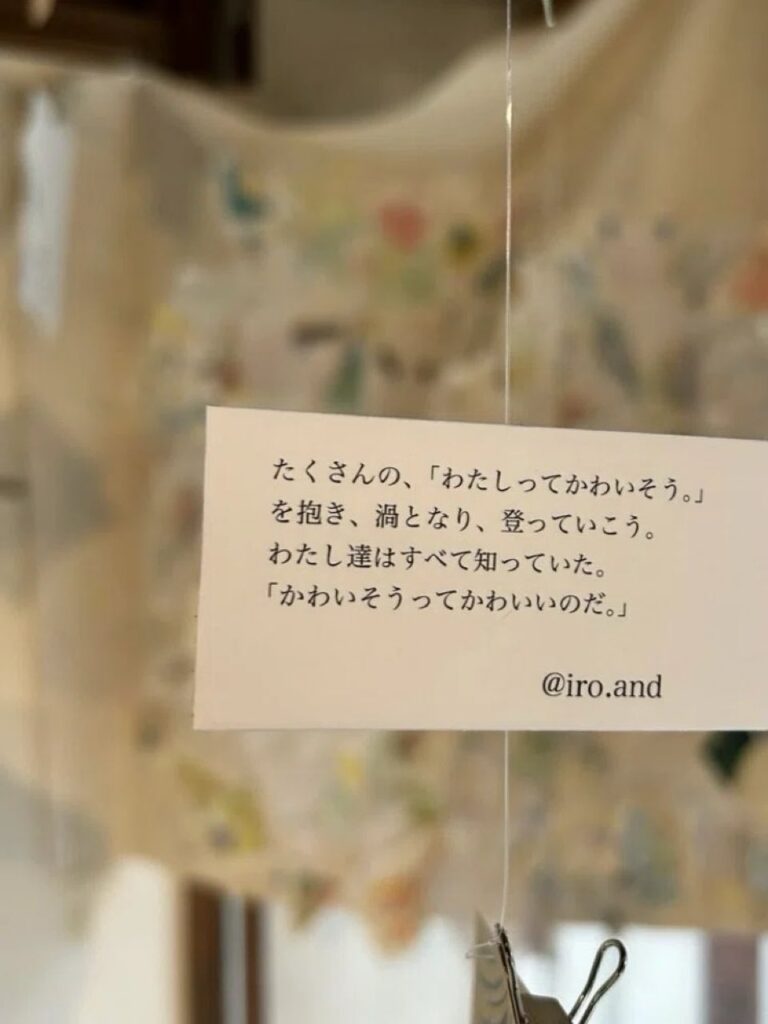 たくさんの、「わたしってかわいそう。」
を抱き、渦となり、登っていこう。
わたし達はすべて知っていた。
「かわいそうってかわいいのだ。」
@iro.and